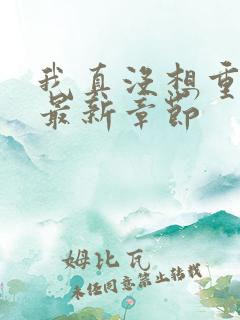 我真没想重
最新章节
姆比瓦
未经同意禁止转载